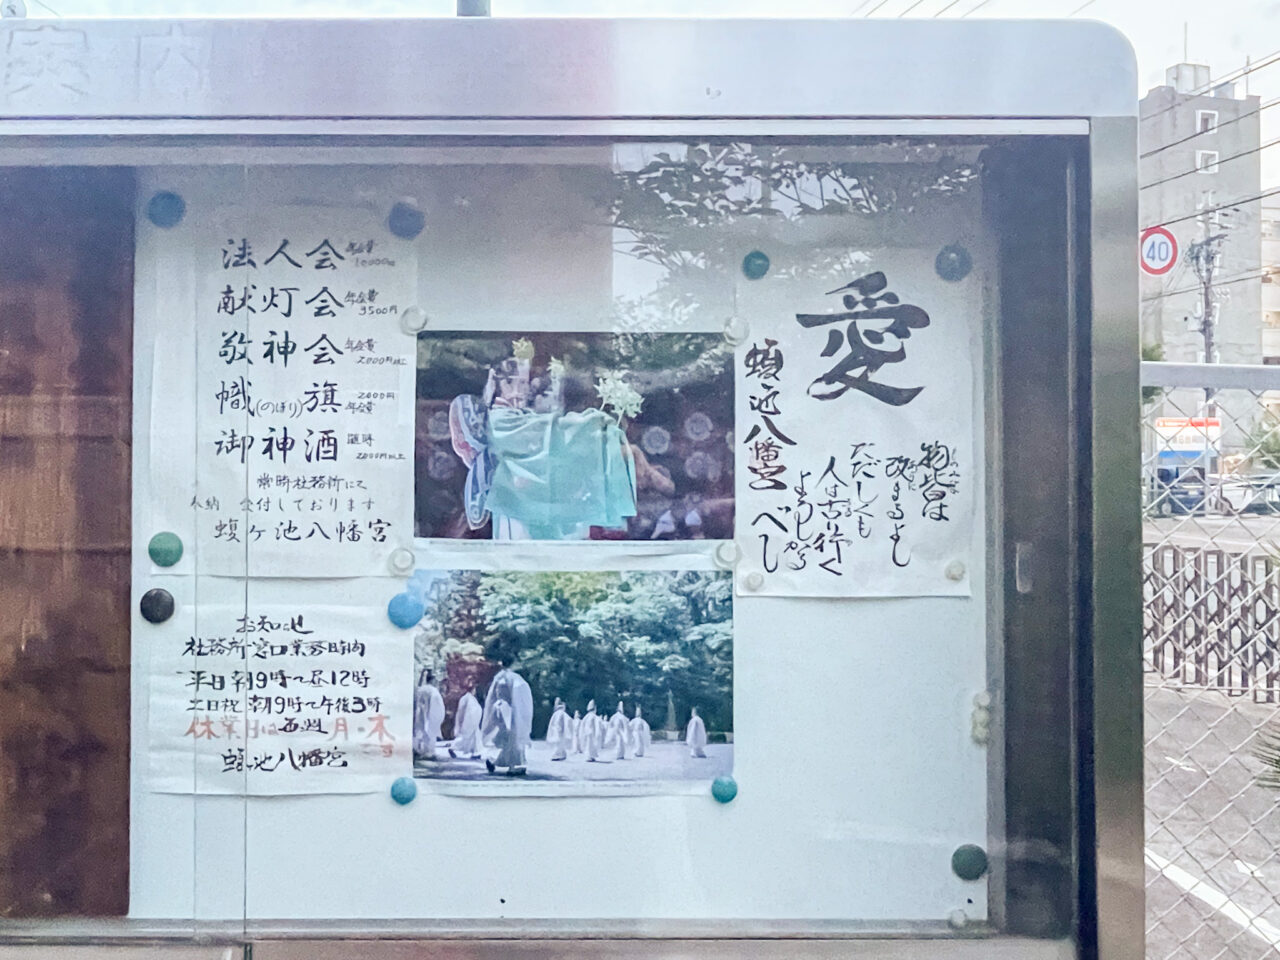 案内
法人会 年会費10000円
献灯会 年会費3500円
敬神会 年会費2000円以上
幟(のぼり)旗 2000円年会費
御神酒 随時2000円以上
常時社務所にて
奉納 受付しております
蝮ヶ池八幡宮
お知らせ
社務所窓口業務時間
平日朝9時〜昼12時
土日祝 朝9時〜午後3時
休業日は毎週 月・木
です
蝮池八幡宮
愛
物皆は
改まるよし
ただしくも
人は古り行く
よろしかる
べし
蝮池八幡宮
40